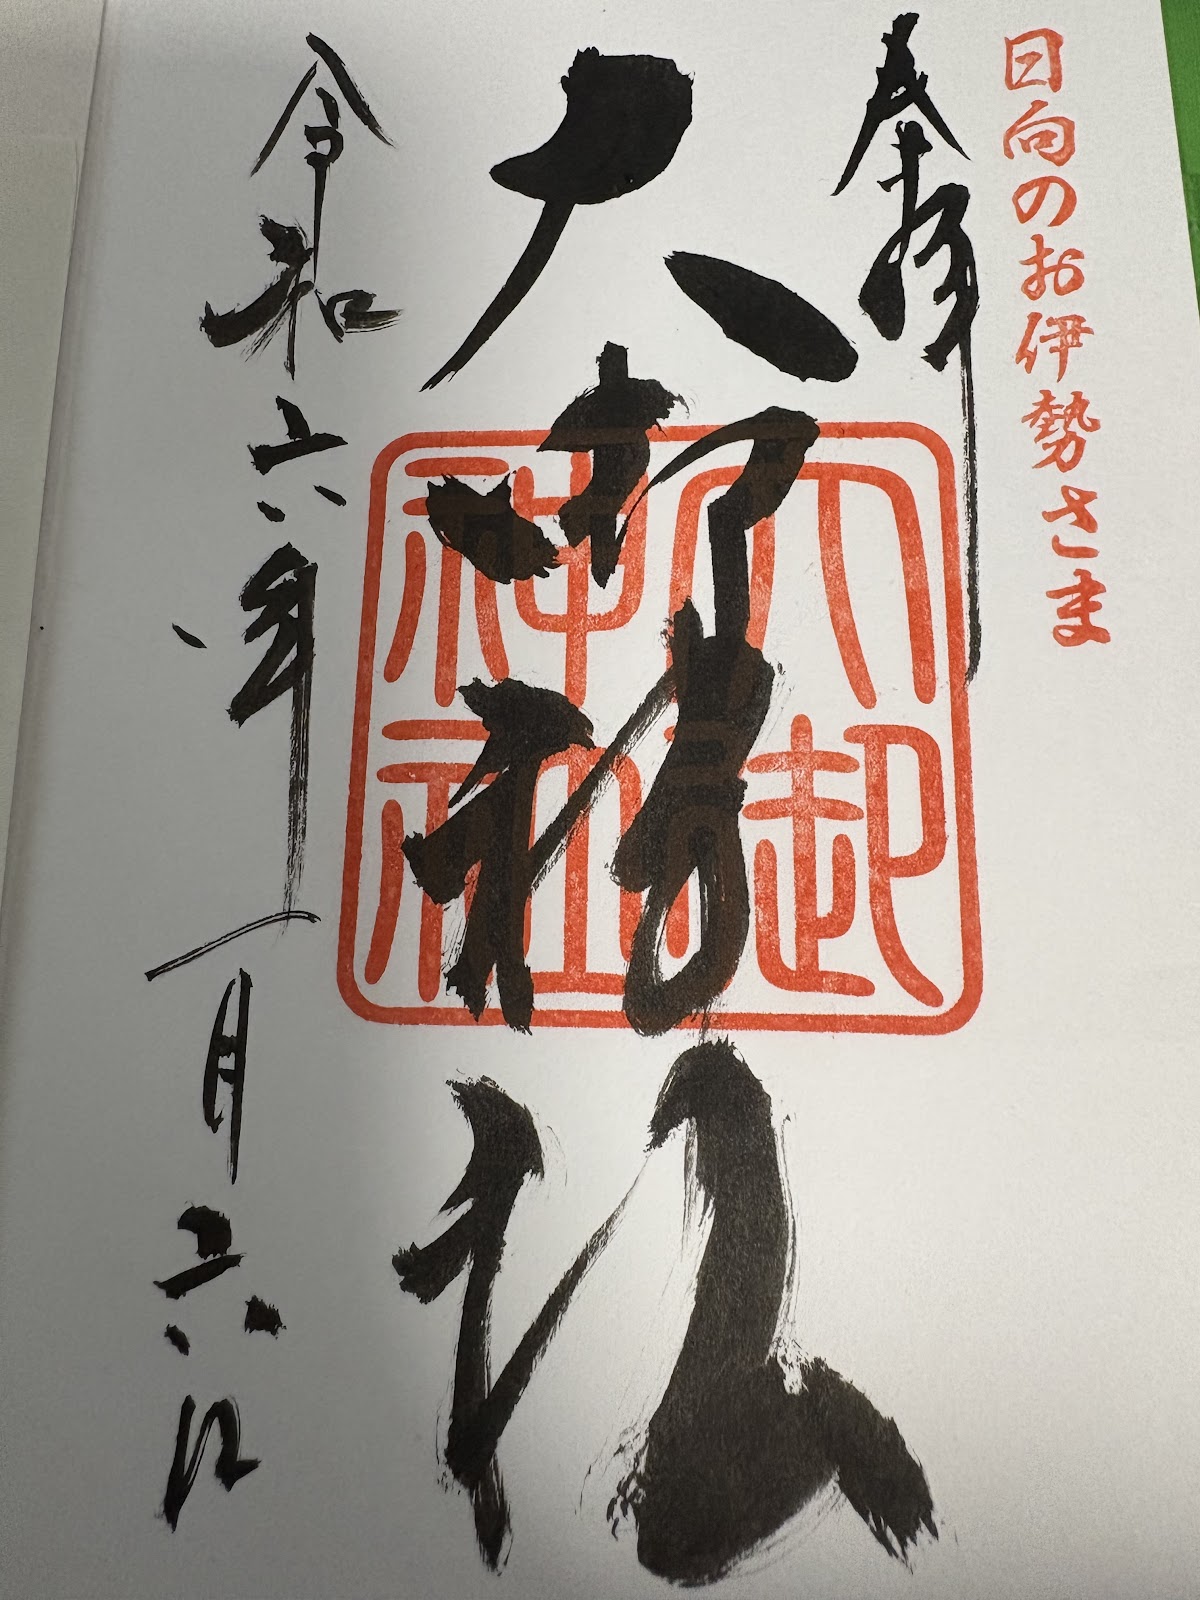 日向のお伊勢さま
奉拝
大御神社
大御
神社
令和六年一月六日